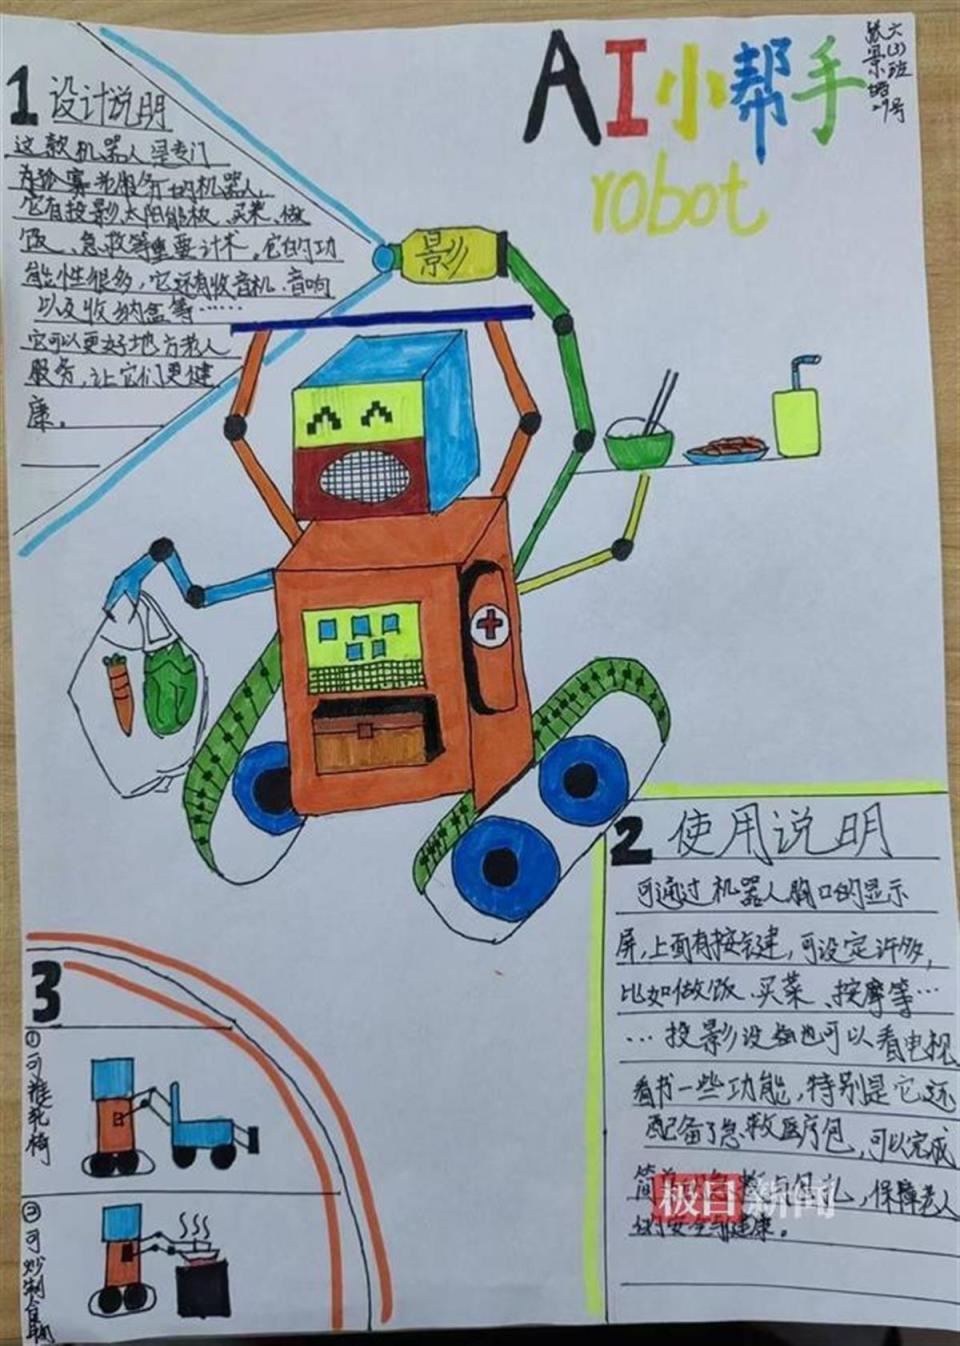 AI小帮手
robot
六(3)班
29号
1 设计说明
这款机器人是专门
为 服务的机器人,
它有投影、太阳能板、买菜、做
饭、急救等重要计术。它的功
能性很多,它还有收音机、音响
以及收纳盒等……
它可以更好地为老人
服务,让它们更健
康。
影
2 使用说明
可通过机器人胸口的显示
屏,上面有按键,可设定许多,
比如做饭、买菜、按摩等…
…投影设备也可以看电视
看书一些功能,特别是它还
配备了急救医疗包,可以完成
简单 ,保障老人
的安全与健康。
极目新闻
3
①可推轮椅
②可炒制食物